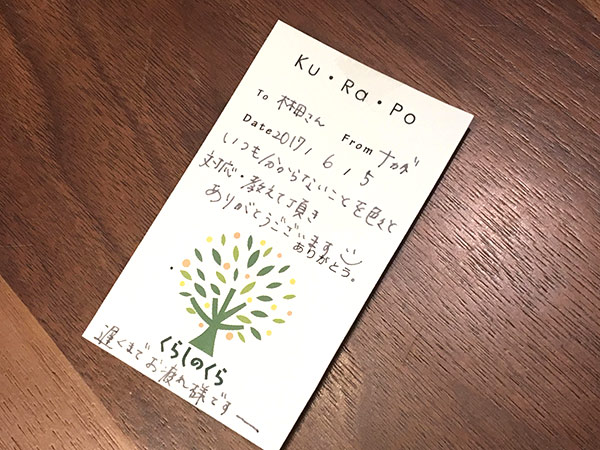 KU・Ra・PO
To 林田さん From ナカガ
Date 2017, 6, 5
いつも分からないことを色々と
対応・教えて頂き
ありがとうございます
ありがとう。
くらしのくら
遅くまでお疲れ様ですー